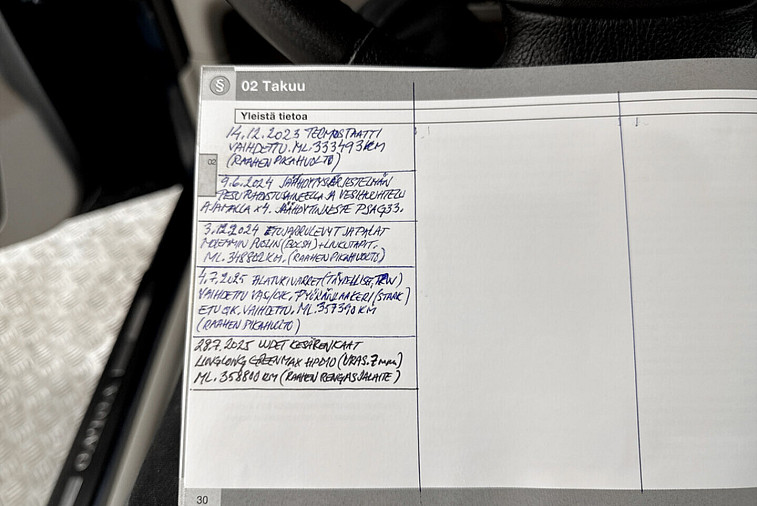 § 02 Takuu
Yleistä tietoa
02
14.12.2023 TERMOSTAATTI
VAIHDETTU. ML. 333493KM
(RAAHEN PIKAHUOLTO)
9.6.2024 JÄÄHDYTYSJÄRJESTELMÄN
PESU PUHDISTUSAINEELLA JA VESIHUUHTELU
AJAMALLA x4. JÄÄHDYTINNESTE PSAG33.
3.12.2024 ETUJARRULEVYT JA PALAT
MOLEMMIN PUOLIN (BOSH) + LIUKUTAPIT.
ML. 348802KM. (RAAHEN PIKAHUOLTO)
4.7.2025 ALATUKIVARRET (TÄYDELLISET, TRW)
VAIHDETTU VAS/OIK. PYÖRÄNLAAKERI (STARK)
ETU OIK. VAIHDETTU. ML. 357390 KM
(RAAHEN PIKAHUOLTO)
28.7.2025 UUDET KESÄRENKAAT
LINGLONG GREENMAX HP010 (URAS. 7mm)
ML. 358800 KM (RAAHEN RENGASJALAITE)
30